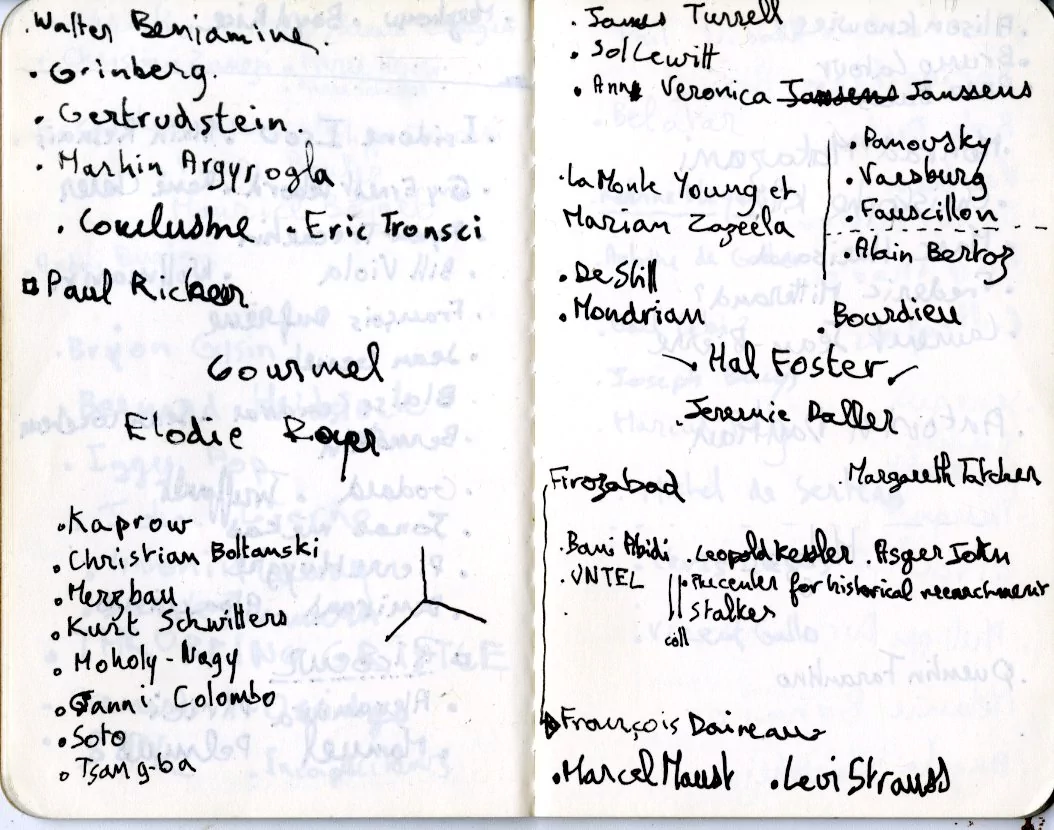 . Walter Benjamine.
. Grinberg.
. Gertrudstein.
. Marhin Argyrogla
. Eric Tronsci
Paul Ricker
Gourmel
Elodie Royer
. Kaprow
. Christian Boltanski
. Merzbau
. Kurt Schwitters
. Moholy-Nagy
. Gianni Colombo
. Soto
. Tsang-ba
. James Turrell
. Sol Lewitt
. Ann Veronica Jansens Janssens
. Panovsky
. Varsburg
. Fauscillon
. Alain Bertoz
. La Monte Young et
Marian Zazeela
. De Still
. Mondrian
. Bourdieu
Hal Foster
. Jeremie Daller
. Margareth Tatcher
Firozabad
. Bani Abidi . Leopold Kessler . Asger John
. UNTEL . The center for historical reenactment
Stalker
coll
François Daireaux
. Marcel Maust . Levi Strauss